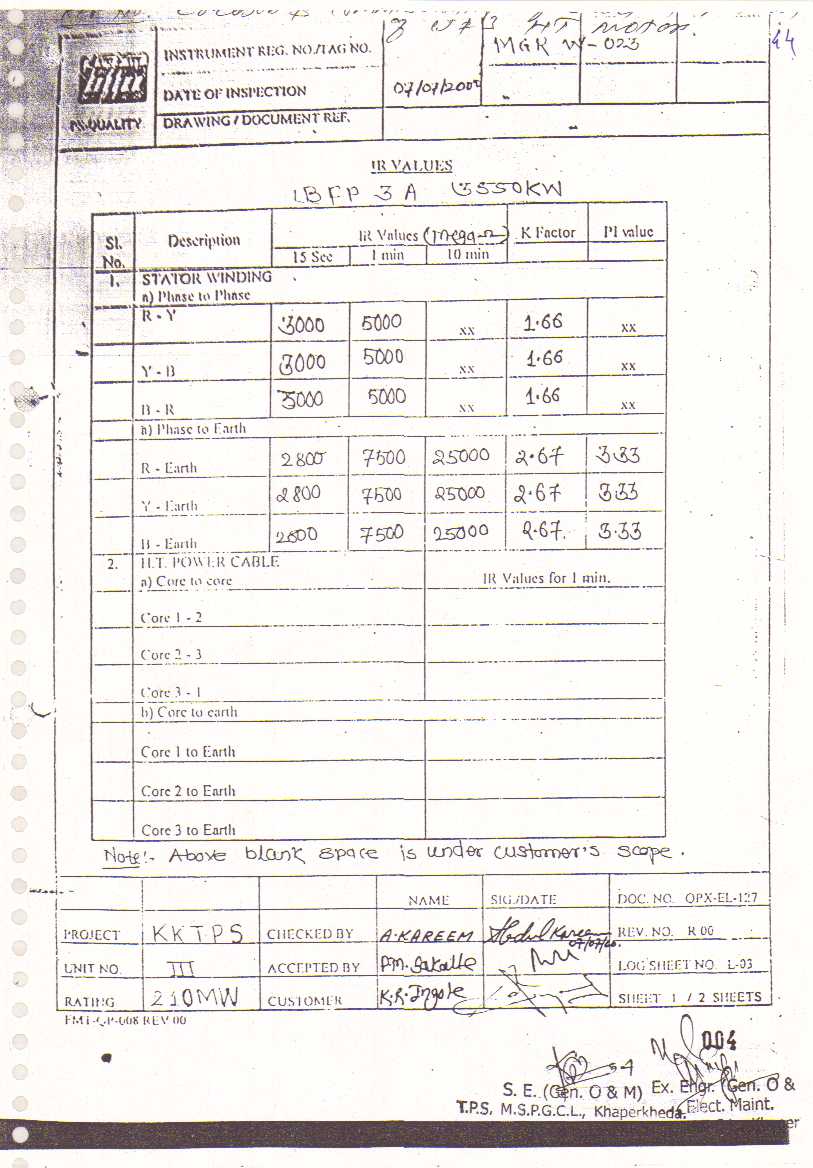 HT motor.
44
INSTRUMENT REG. NO./TAG NO. MGR W-023
DATE OF INSPECTION 07/07/2000
DRAWING / DOCUMENT REF.
PS-QUALITY
IR VALUES
1BFP 3A 3550KW
Sl. No. Description IR Values (mega-Ω) K Factor PI value
15 Sec 1 min 10 min
1. STATOR WINDING
a) Phase to Phase
R - Y 3000 5000 xx 1.66 xx
Y - B 3000 5000 xx 1.66 xx
B - R 3000 5000 xx 1.66 xx
b) Phase to Earth
R - Earth 2800 7500 25000 2.67 3.33
Y - Earth 2800 7500 25000 2.67 3.33
B - Earth 2800 7500 25000 2.67. 3.33
2. H.T. POWER CABLE
a) Core to core IR Values for 1 min.
Core 1 - 2
Core 2 - 3
Core 3 - 1
b) Core to earth
Core 1 to Earth
Core 2 to Earth
Core 3 to Earth
Note:- Above blank space is under customer's scope.
NAME SIG./DATE DOC. NO. OPX-EL-127
PROJECT KKTPS CHECKED BY A.KAREEM Abdul Kareem 07/07/00. REV. NO. R 00
UNIT NO. III ACCEPTED BY P.M. LOG SHEET NO. L-03
RATING 210MW CUSTOMER K.R. Ingole SHEET 1 / 2 SHEETS
FMT-QP-008 REV 00
004
S. E. (Gen. O & M) Ex. Engr. (Gen. O &
T.P.S, M.S.P.G.C.L., Khaperkheda. Elect. Maint.